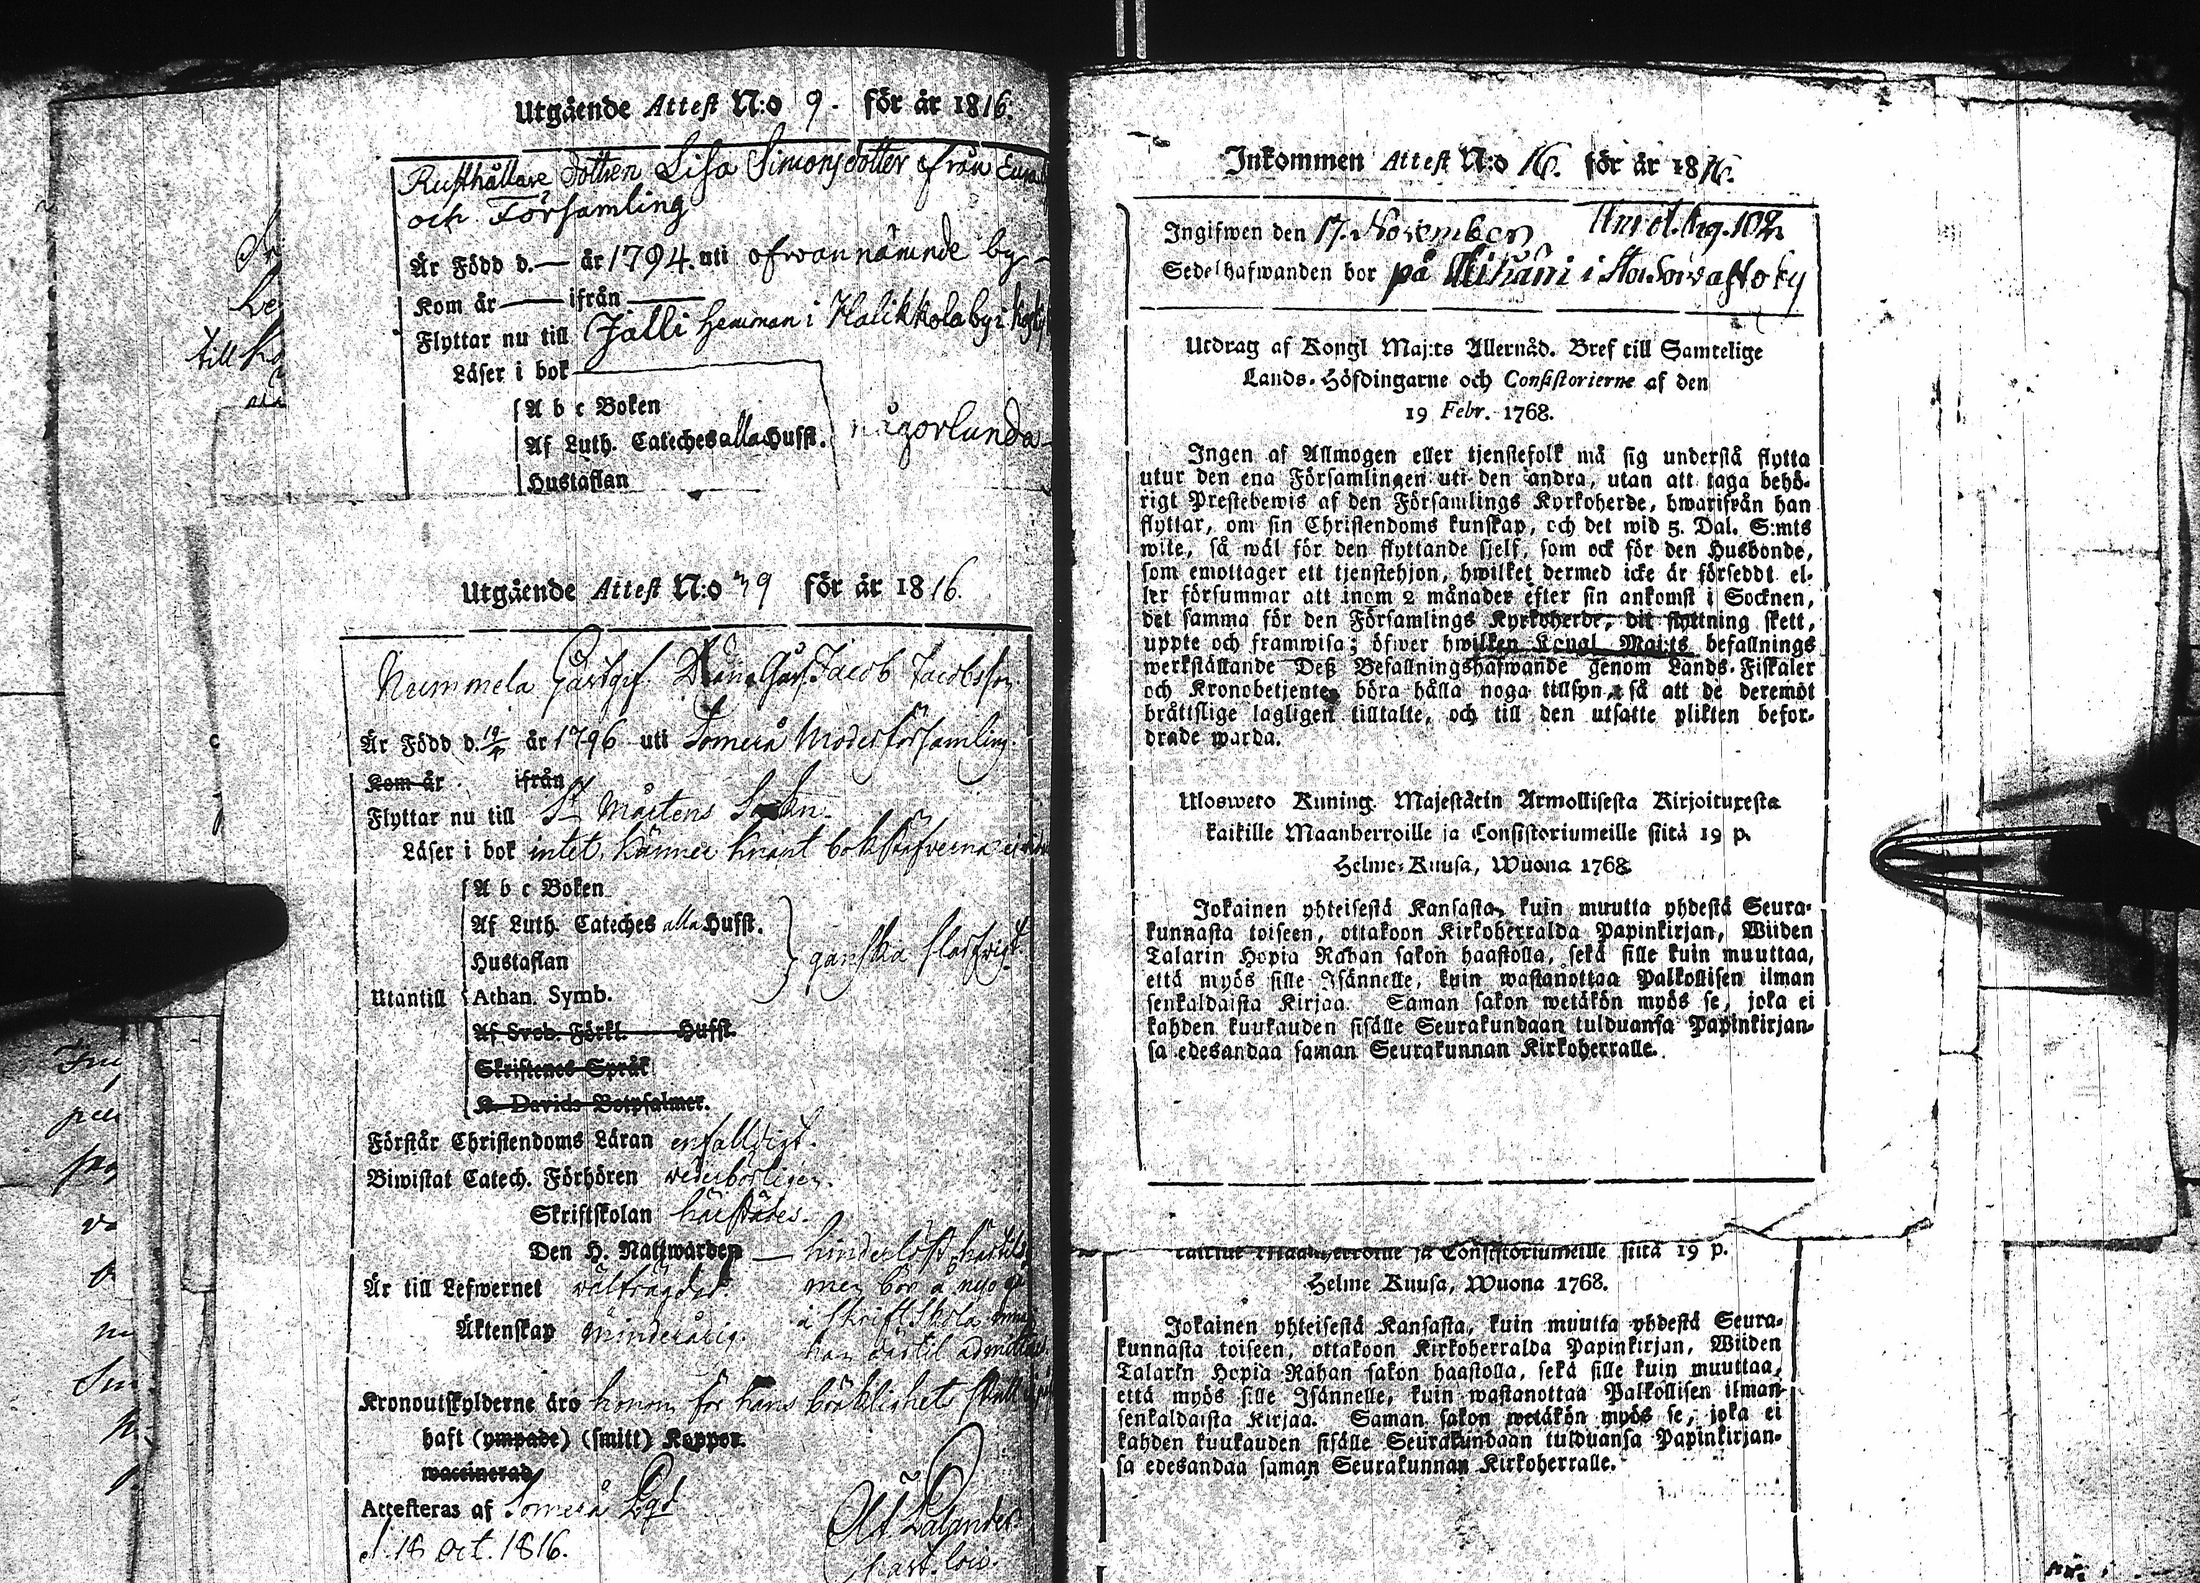 Utgående Attest N:o 9. för år 1816.
Rusthållare dottren Lisa Simonsdotter från
och Församling
Är Född d. — år 1794. uti ofwannämnde by
Kom år — ifrån —
Flyttar nu till Jälli hemman i Halikkola by i
Läser i bok
A b c Boken
Af Luth. Cateches alla Hufst. någorlunda
Hustaflan
Utgående Attest N:o 39 för år 1816.
Nummela Gästgif. Jacob Jacobsson
Är Född d. år 1796 uti Somerå Moderförsamling.
Kom år ifrån
Flyttar nu till St Mårtens Sockn.
Läser i bok intet, känner knapt bokstäfverna
A b c Boken
Af Luth. Cateches alla Hufst.
Hustaflan ganska slarfvigt.
Utantill Athan. Symb.
Af Sveb. Förkl. Hufst.
Skriftenes Språk
K. Davids Botpsalmer.
Förstår Christendoms Läran enfalldigt.
Biwistat Catech. Förhören wederbörligen.
Skriftskolan härstädes.
Den H. Nattwarden — hinderlöst härtils
Är till Lefwernet wälfrägdad. men bör å nyo gå
Äktenskap minderårig. i Skriftskola innan
han dertil admitteras
Kronoutskylderne äro honom för hans bräklighets skull
haft (ympade) (smitt) Koppor.
waccinerad
Attesteras af Somerå Pgd
d. 18 Oct. 1816.
Palander
Inkommen Attest N:o 16. för år 1816.
Ingifwen den 17. November pag. 102
Sedelhafwanden bor på i
Utdrag af Kongl Maj:ts Allernåd. Bref till Samtelige
Lands-Höfdingarne och Consistorierne af den
19 Febr. 1768.
Ingen af Allmogen eller tjenstefolk må sig understå flytta
utur den ena Församlingen uti den andra, utan att taga behö-
rigt Prestebewis af den Församlings Kyrkoherde, hwarifrån han
flyttar, om sin Christendoms kunskap, och det wid 5. Dal. S:mts
wite, så wäl för den flyttande sjelf, som ock för den Husbonde,
som emottager ett tjenstehjon, hwilket dermed icke är försedt el-
ler försummar att inom 2 månader efter sin ankomst i Socknen,
det samma för den Församlings Kyrkoherde, dit flyttning skett,
uppte och framwisa; öfwer hwilken Kongl Maj:ts befallnings
werkställande Deß Befallningshafwande genom Lands-Fiskaler
och Kronobetjente böra hålla noga tillsyn, så att de deremot
bråttslige lagligen tilltalte, och till den utsatte plikten befor-
drade warda.
Ulosweto Kuning. Majestätin Armollisesta Kirjoituxesta
kaikille Maanherroille ja Consistoriumeille siitä 19 p.
Helme-Kuusa, Wuona 1768.
Jokainen yhteisestä Kansasta, kuin muutta yhdestä Seura-
kunnasta toiseen, ottakoon Kirkoherralda Papinkirjan, Wiiden
Talarin Hopia Rahan sakon haastolla, sekä sille kuin muuttaa,
että myös sille Isännelle, kuin wastanottaa Palkollisen ilman
senkaldaista Kirjaa. Saman sakon wetäkön myös se, joka ei
kahden kuukauden sisälle Seurakundaan tulduansa Papinkirjan-
sa edesandaa saman Seurakunnan Kirkoherralle.
kaikille Maanherroille ja Consistoriumeille siitä 19 p.
Helme Kuusa, Wuona 1768.
Jokainen yhteisestä Kansasta, kuin muutta yhdestä Seura-
kunnasta toiseen, ottakoon Kirkoherralda Papinkirjan, Wiiden
Talarin Hopia Rahan sakon haastolla, sekä sille kuin muuttaa,
että myös sille Isännelle, kuin wastanottaa Palkollisen ilman
senkaldaista Kirjaa. Saman sakon wetäkön myös se, joka ei
kahden kuukauden sisälle Seurakundaan tulduansa Papinkirjan-
sa edesandaa saman Seurakunnan Kirkoherralle.